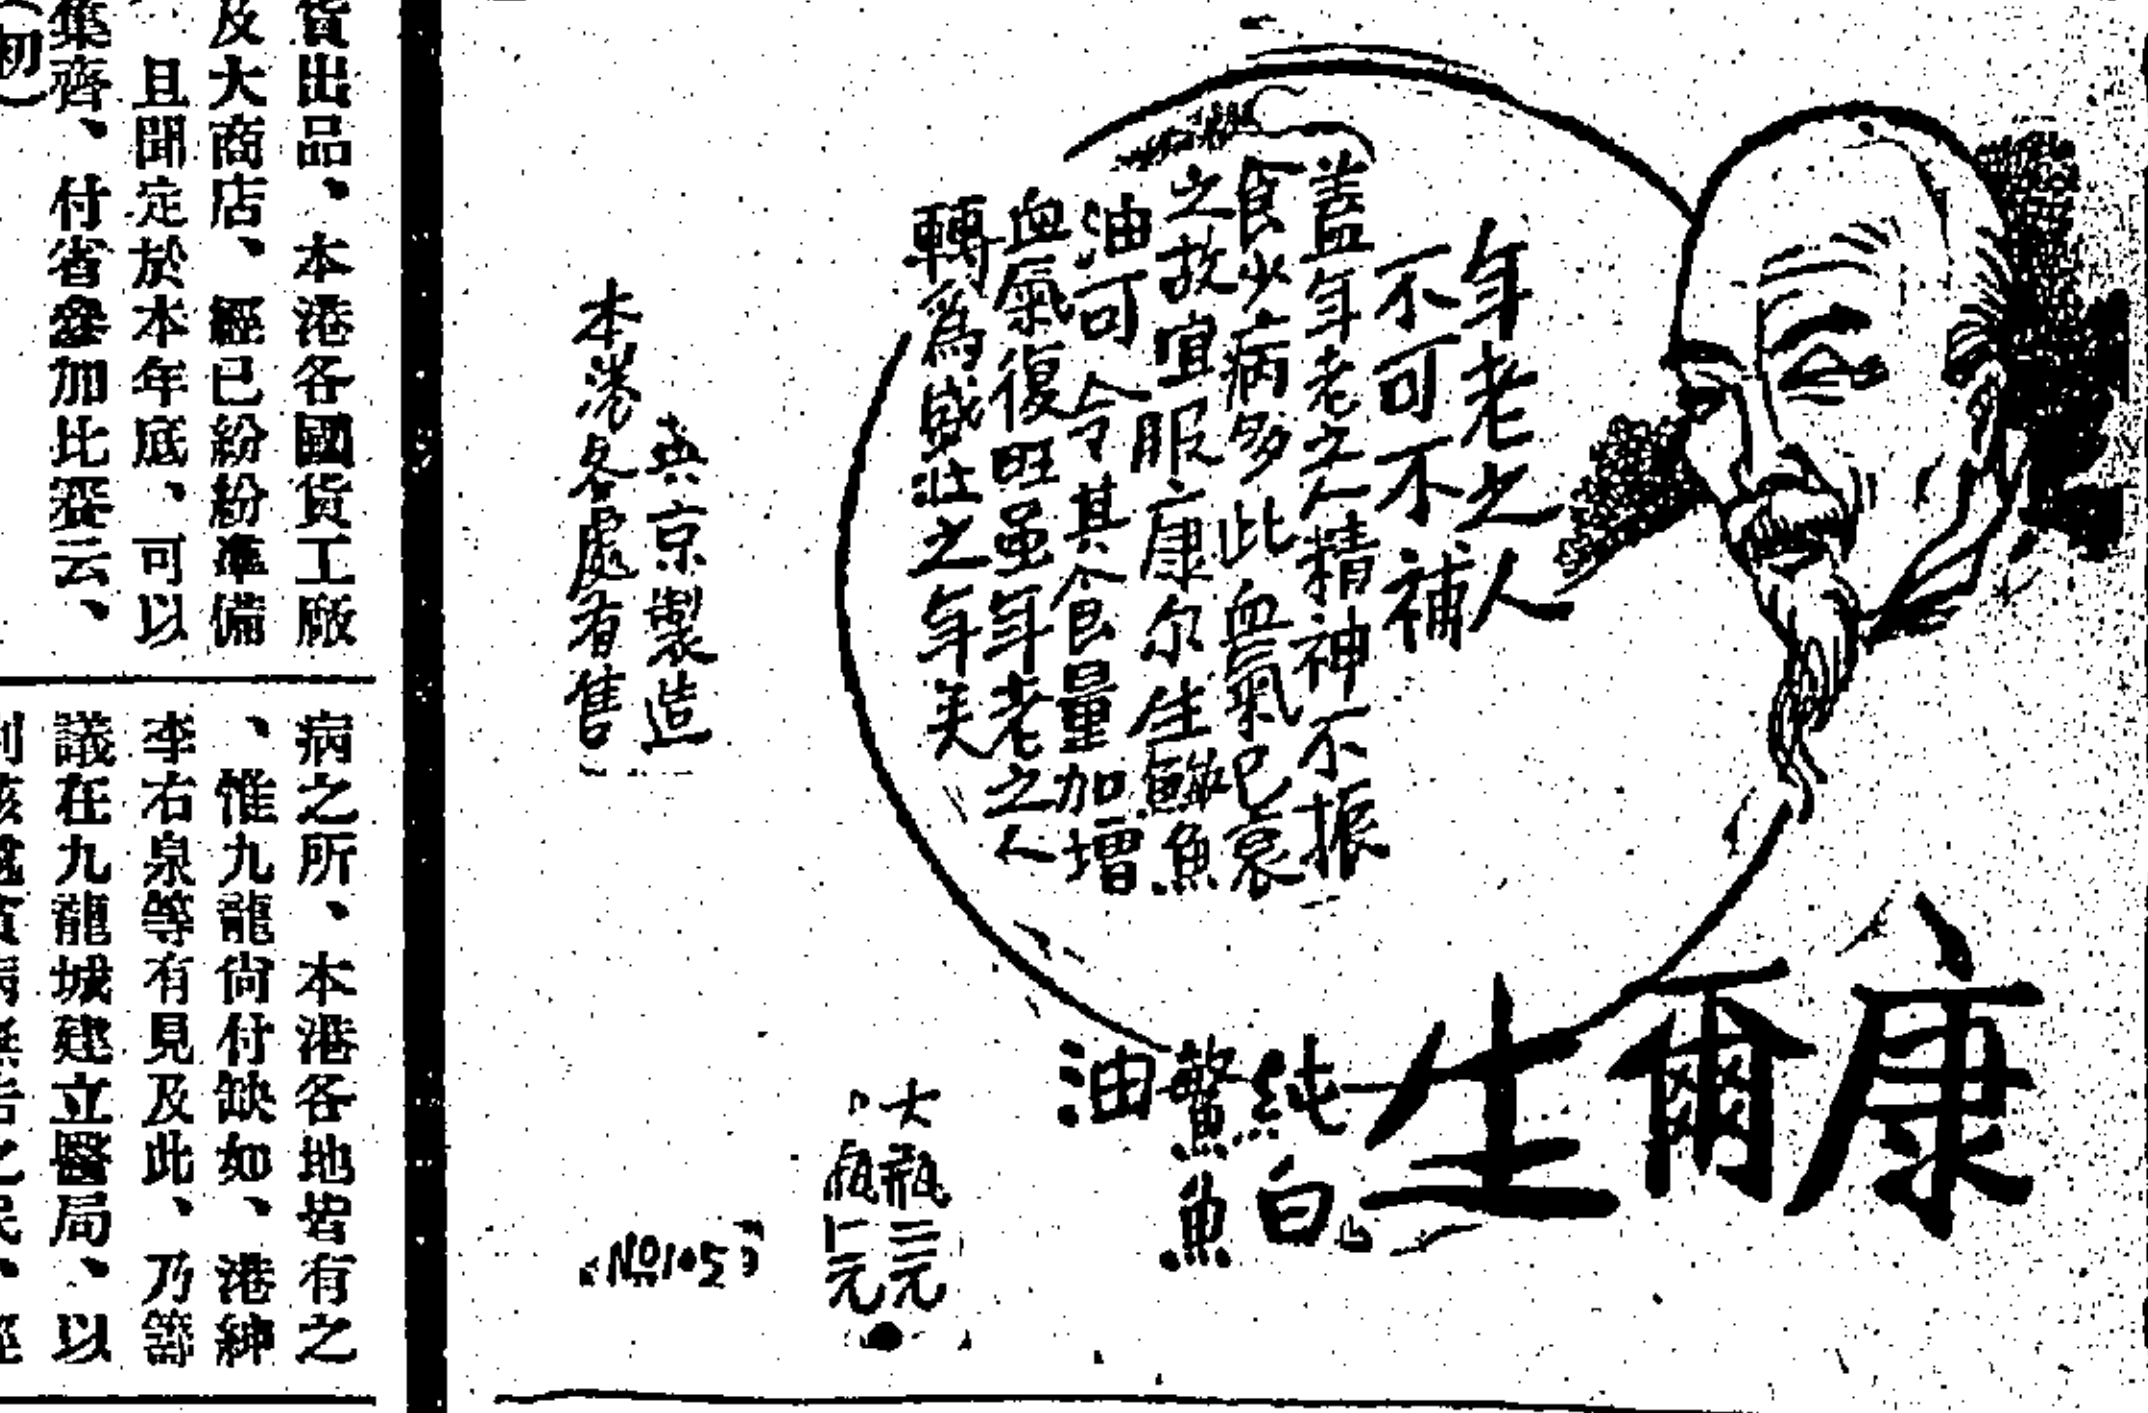 年老之人
不可不補
蓋年老之人精神不振
食少病多此血氣已衰
之故宜服康尔生鱉魚
油可令其食量加增
血氣復旺虽年老之人
轉為盛壯之年矣
康爾生
純白
鱉魚
油
大瓶三元
瓶一元
英京製造
本港各處有售
NO 105
貨出品、本港各國貨工廠
及大商店、經已紛紛準備
且聞定於本年底、可以
集齊、付省參加比賽云、
(初)
病之所、本港各地皆有之
、惟九龍尙付缺如、港紳
李右泉等有見及此、乃籌
議在九龍城建立醫局、以